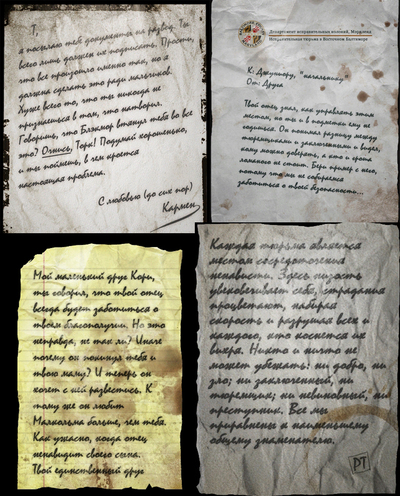 Т,
я посылаю тебе документы на развод. Ты
всего лишь должен их подписать. Прости,
что все произошло именно так, но я
должна сделать это ради мальчиков.
Хуже всего то, что ты никогда не
признаешься в том, что натворил.
Говоришь, что Блэкмор втянул тебя во все
это? Очнись, Торк! Подумай хорошенько,
и ты поймешь, в чем кроется
настоящая проблема.
С любовью (до сих пор)
Кармен
Департамент исправительных колоний, Мэриленд
Исправительная тюрьма в Восточном Балтиморе
К: Джуниору, "начальнику"
От: Друга
Твой отец знал, как управлять этим
местом, но ты и в подметки ему не
годишься. Он понимал разницу между
тюремщиками и заключенными и видел,
кому можно доверять, а кто и гроша
ломаного не стоит. Бери пример с него,
потому что мы не собираемся
заботиться о твоей безопасности...
Мой маленький друг Кори,
ты говорил, что твой отец
всегда будет заботиться о
твоем благополучии. Но это
неправда, не так ли? Иначе
почему он покинул тебя и
твою маму? И теперь он
хочет с ней развестись. К
тому же он любит
Малкольма больше, чем тебя.
Как ужасно, когда отец
ненавидит своего сына.
Твой единственный друг
Каждая тюрьма является
местом сосредоточения
ненависти. Здесь низость
увековечивает себя, страдания
процветают, набирая
скорость и разрушая всех и
каждого, кто коснется их
вихря. Никто и ничто не
может убежать: ни добро, ни
зло; ни заключенный, ни
тюремщик; ни невиновный, ни
преступник. Все мы
приравнены к наименьшему
общему знаменателю.
DT